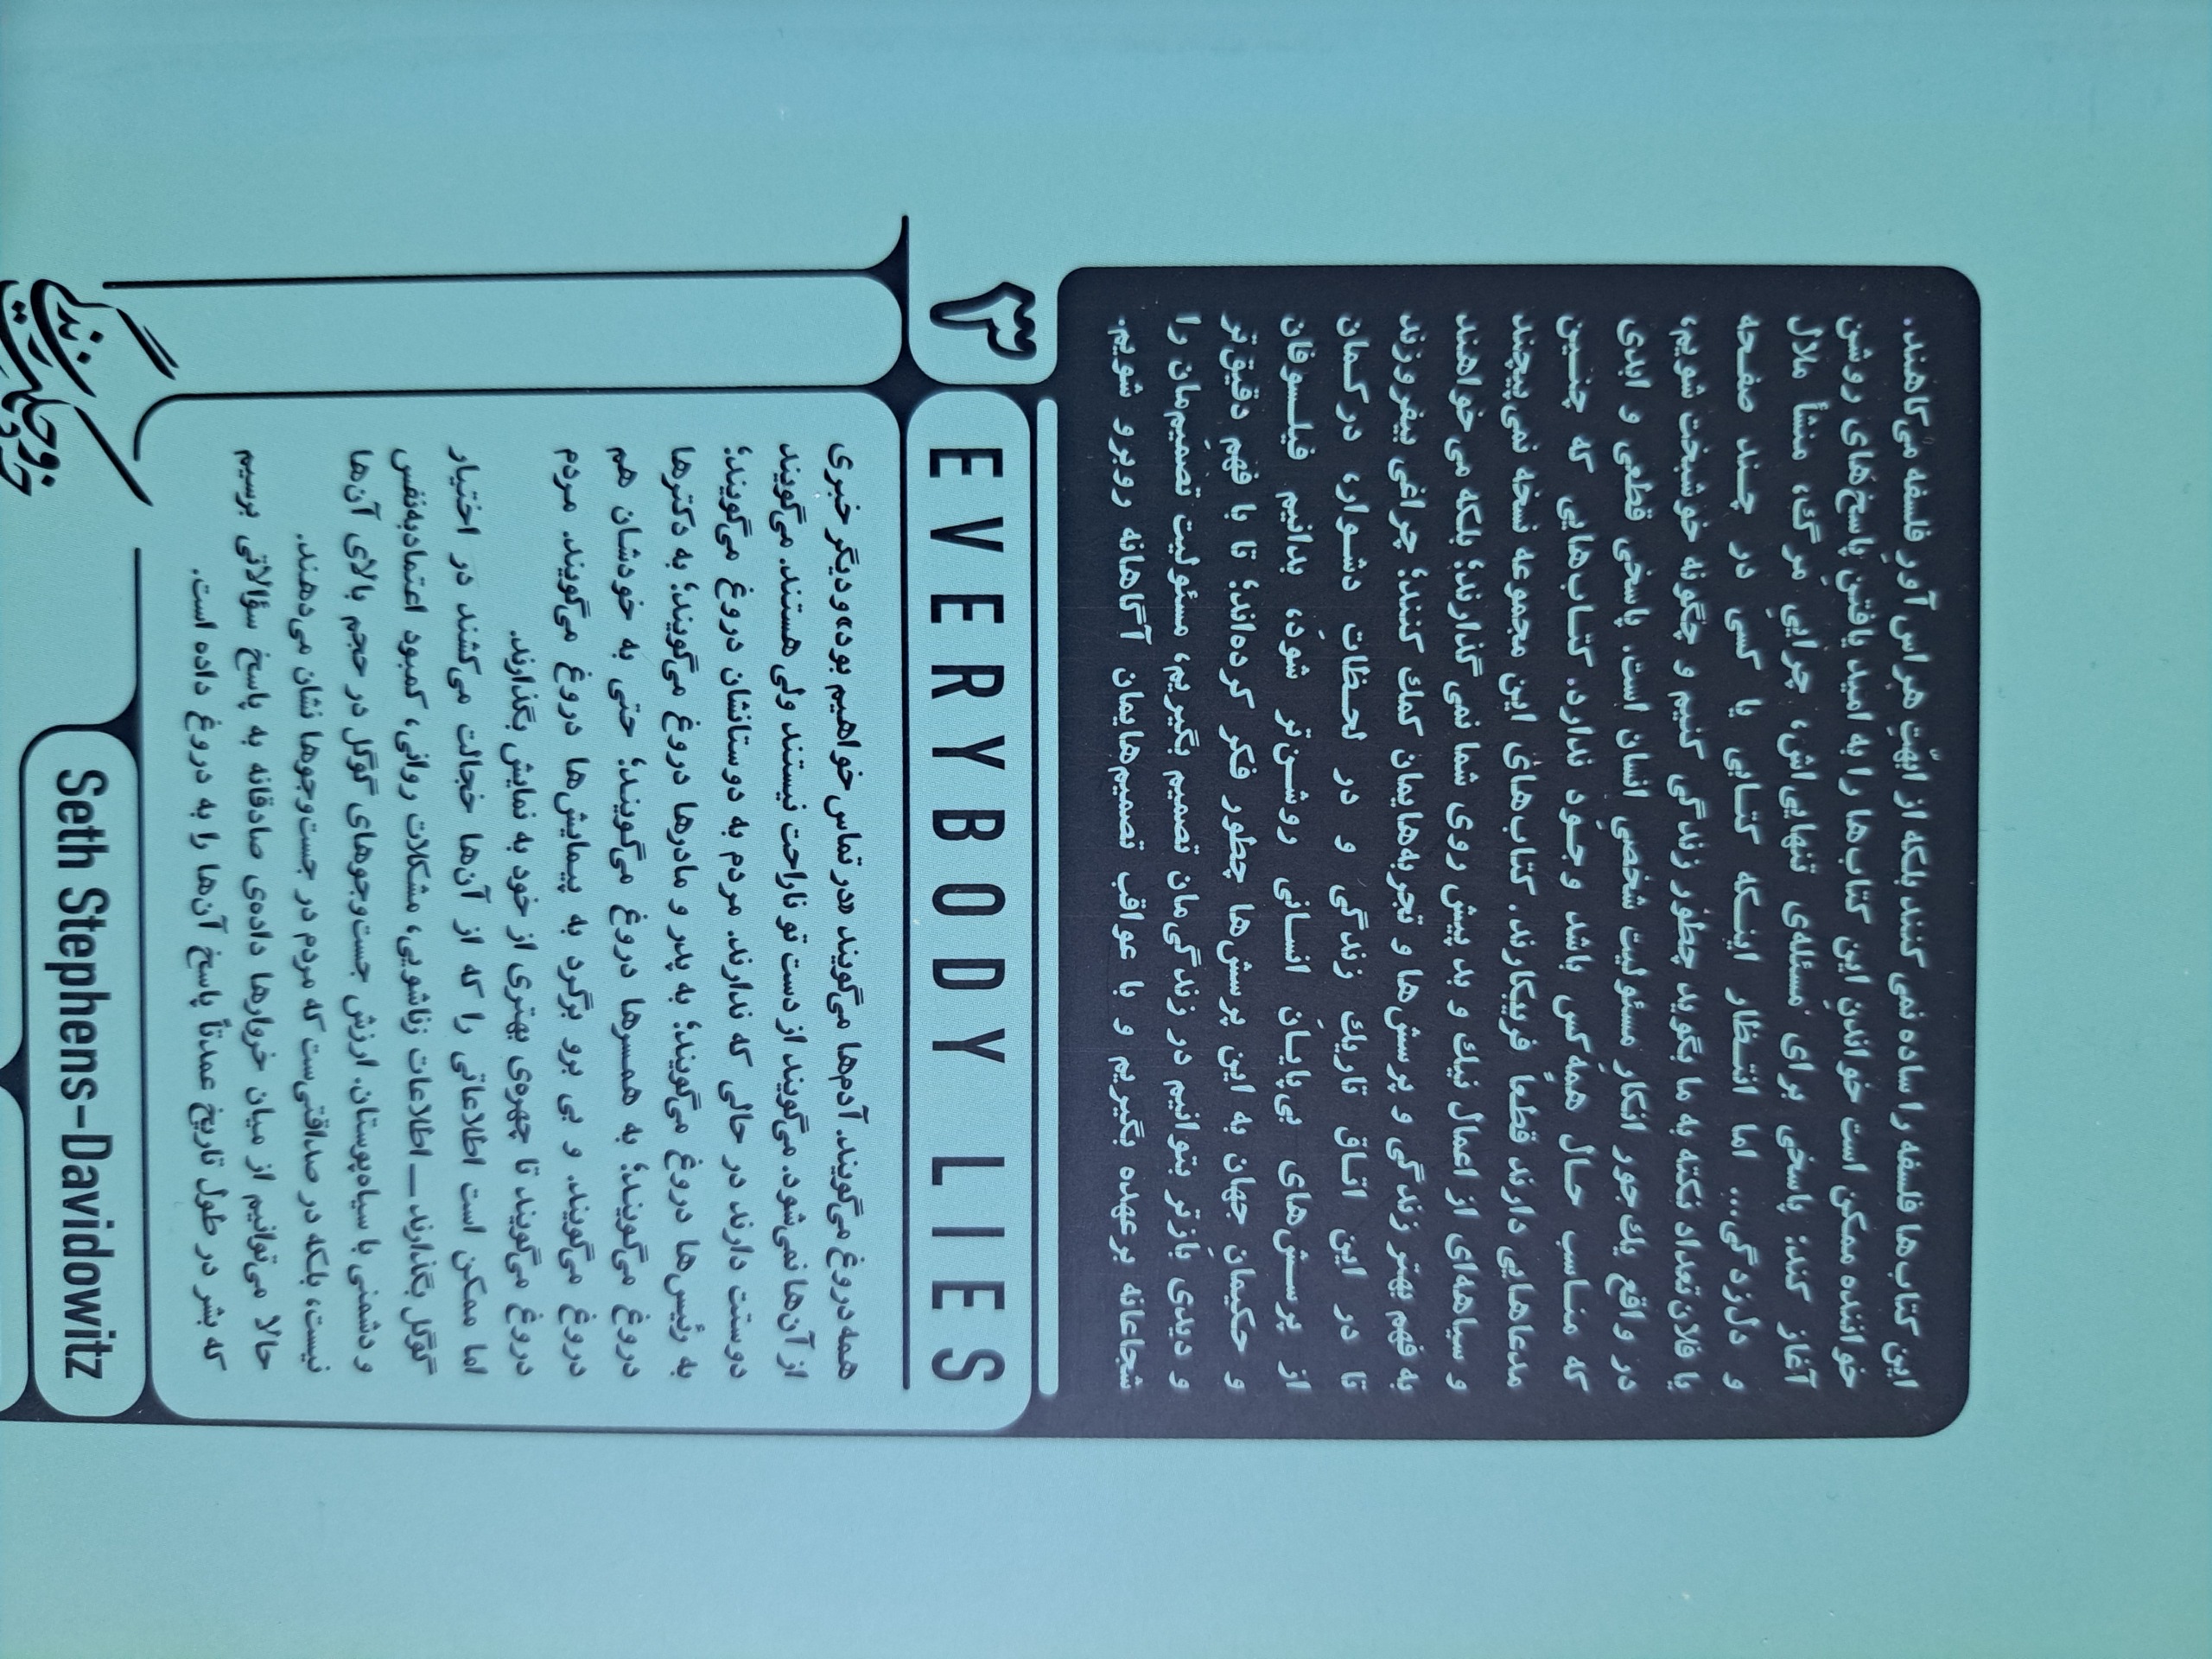 این کتاب‌ها فلسفه را ساده نمی‌کنند بلکه از ابهّتِ هراس‌آورِ فلسفه می‌کاهند.
خواننده ممکن است خواندنِ این کتاب‌ها را به امید یافتنِ پاسخ‌های روشن
آغاز کند: پاسخی برای مسئله‌ی تنهایی‌اش، چراییِ مرگ، منشأ ملال
و دلزدگی... اما انتظار اینکه کتابی یا کسی در چند صفحه
یا فلان‌تعداد نکته به ما بگوید چطور زندگی کنیم و چگونه خوشبخت شویم،
در واقع یک‌جور انکار مسئولیت شخصیِ انسان است. پاسخی قطعی و ابدی
که مناسب حال همه‌کس باشد وجود ندارد. کتاب‌هایی که چنین
مدعاهایی دارند قطعاً فریبکارند. کتاب‌های این مجموعه نسخه نمی‌پیچند
و سیاهه‌ای از اعمال نیک و بد پیش روی شما نمی‌گذارند؛ بلکه می‌خواهند
به فهم بهتر زندگی و پرسش‌ها و تجربه‌هایمان کمک کنند؛ چراغی بیفروزند
تا در این اتاق تاریک زندگی و در لحظات دشوار، درکمان
از پرسش‌های بی‌پایانِ انسانی روشن‌تر شود، بدانیم فیلسوفان
و حکیمان جهان به این پرسش‌ها چطور فکر کرده‌اند؛ تا با فهمِ دقیق‌تر
و دیدی بازتر بتوانیم در زندگی‌مان تصمیم بگیریم، مسئولیت تصمیم‌مان را
شجاعانه برعهده بگیریم و با عواقب تصمیم‌هایمان آگاهانه روبرو شویم.
۳
EVERYBODY LIES
همه دروغ می‌گویند. آدم‌ها می‌گویند «در تماس خواهیم بود» و دیگر خبری
از آن‌ها نمی‌شود. می‌گویند از دست تو ناراحت نیستند ولی هستند. می‌گویند
دوستت دارند در حالی که ندارند. مردم به دوستانشان دروغ می‌گویند؛
به رئیس‌ها دروغ می‌گویند؛ به پدر و مادرها دروغ می‌گویند؛ به دکترها
دروغ می‌گویند؛ به همسرها دروغ می‌گویند؛ حتی به خودشان هم
دروغ می‌گویند. و بی برو برگرد به پیمایش‌ها دروغ می‌گویند. مردم
دروغ می‌گویند تا چهره‌ی بهتری از خود به نمایش بگذارند.
اما ممکن است اطلاعاتی را که از آن‌ها خجالت می‌کشند در اختیار
گوگل بگذارند ــ اطلاعات زناشویی، مشکلات روانی، کمبود اعتمادبه‌نفس
و دشمنی با سیاه‌پوستان. ارزش جست‌وجوهای گوگل در حجم بالای آن‌ها
نیست، بلکه در صداقتی‌ست که مردم در جست‌وجوها نشان می‌دهند.
حالا می‌توانیم از میان خروارها داده‌ی صادقانه به پاسخ سؤالاتی برسیم
که بشر در طول تاریخ عمدتاً پاسخ آن‌ها را به دروغ داده است.
Seth Stephens-Davidowitz